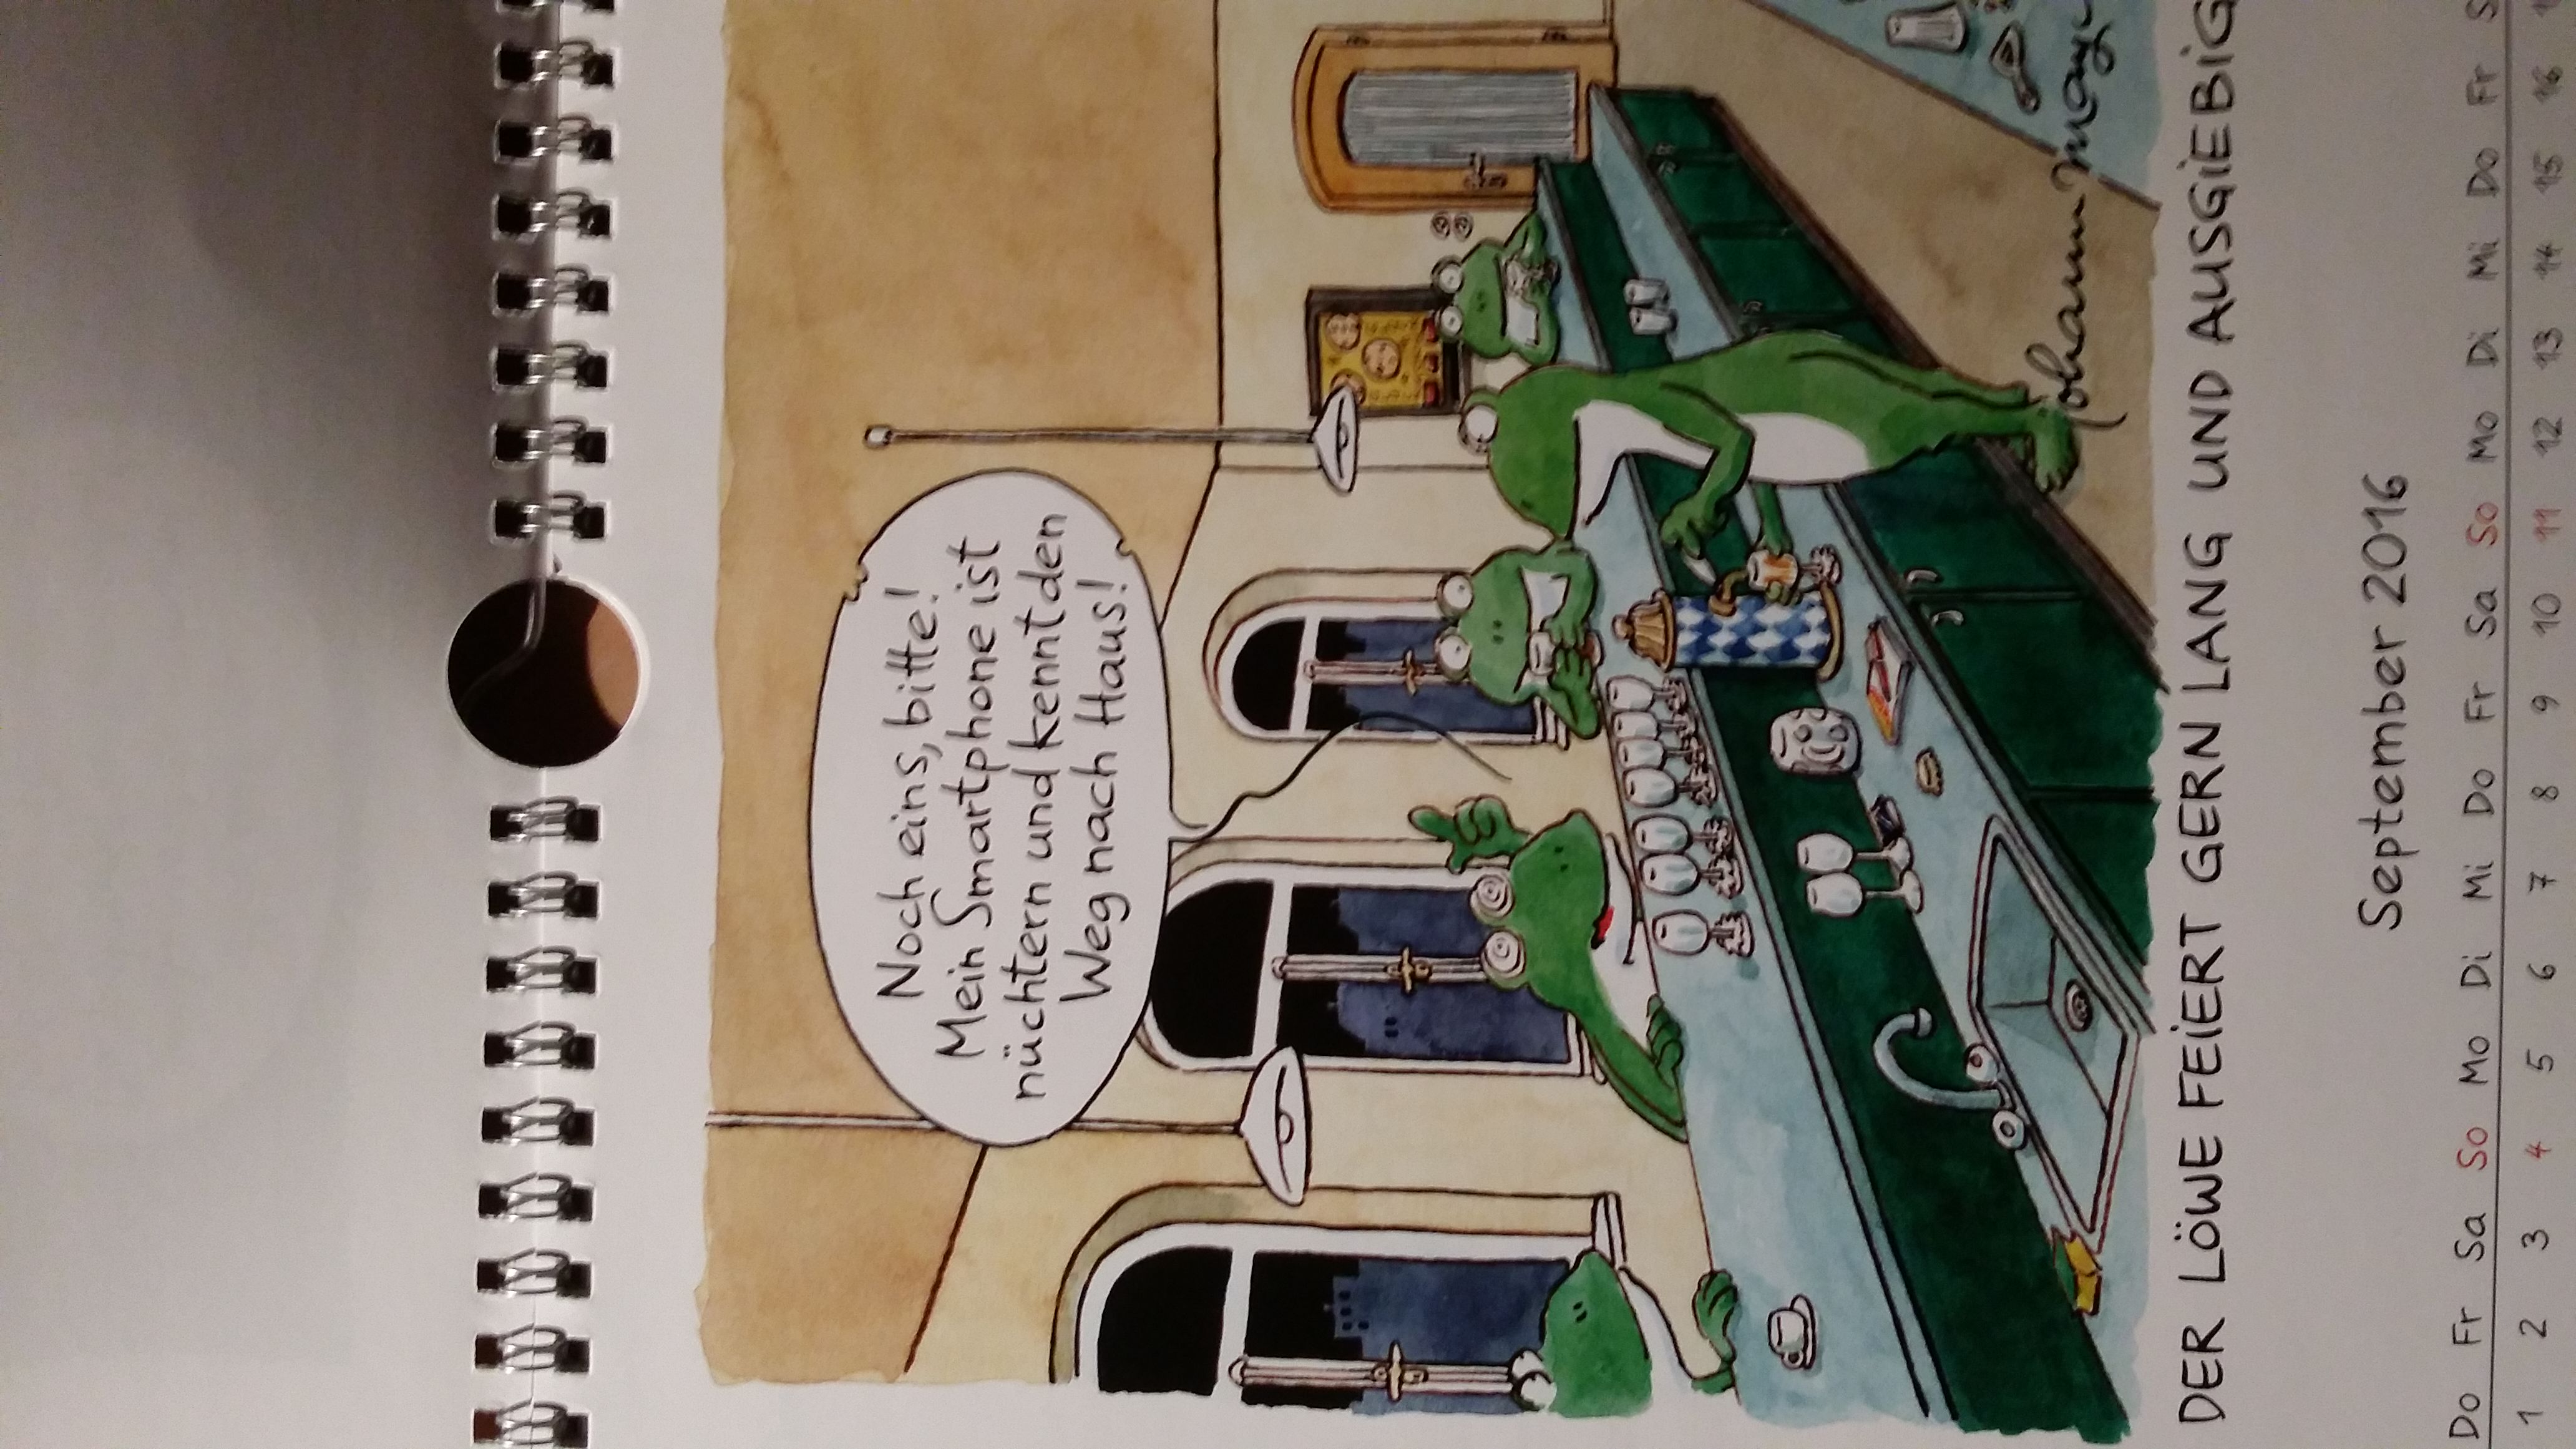 Noch eins, bitte!
Mein Smartphone ist
nüchtern und kennt den
Weg nach Haus!
Johann May
DER LÖWE FEIERT GERN LANG UND AUSGIEBIG
September 2016
Do Fr Sa So Mo Di Mi Do Fr Sa So Mo Di Mi Do Fr S
1 2 3 4 5 6 7 8 9 10 11 12 13 14 15 16 1